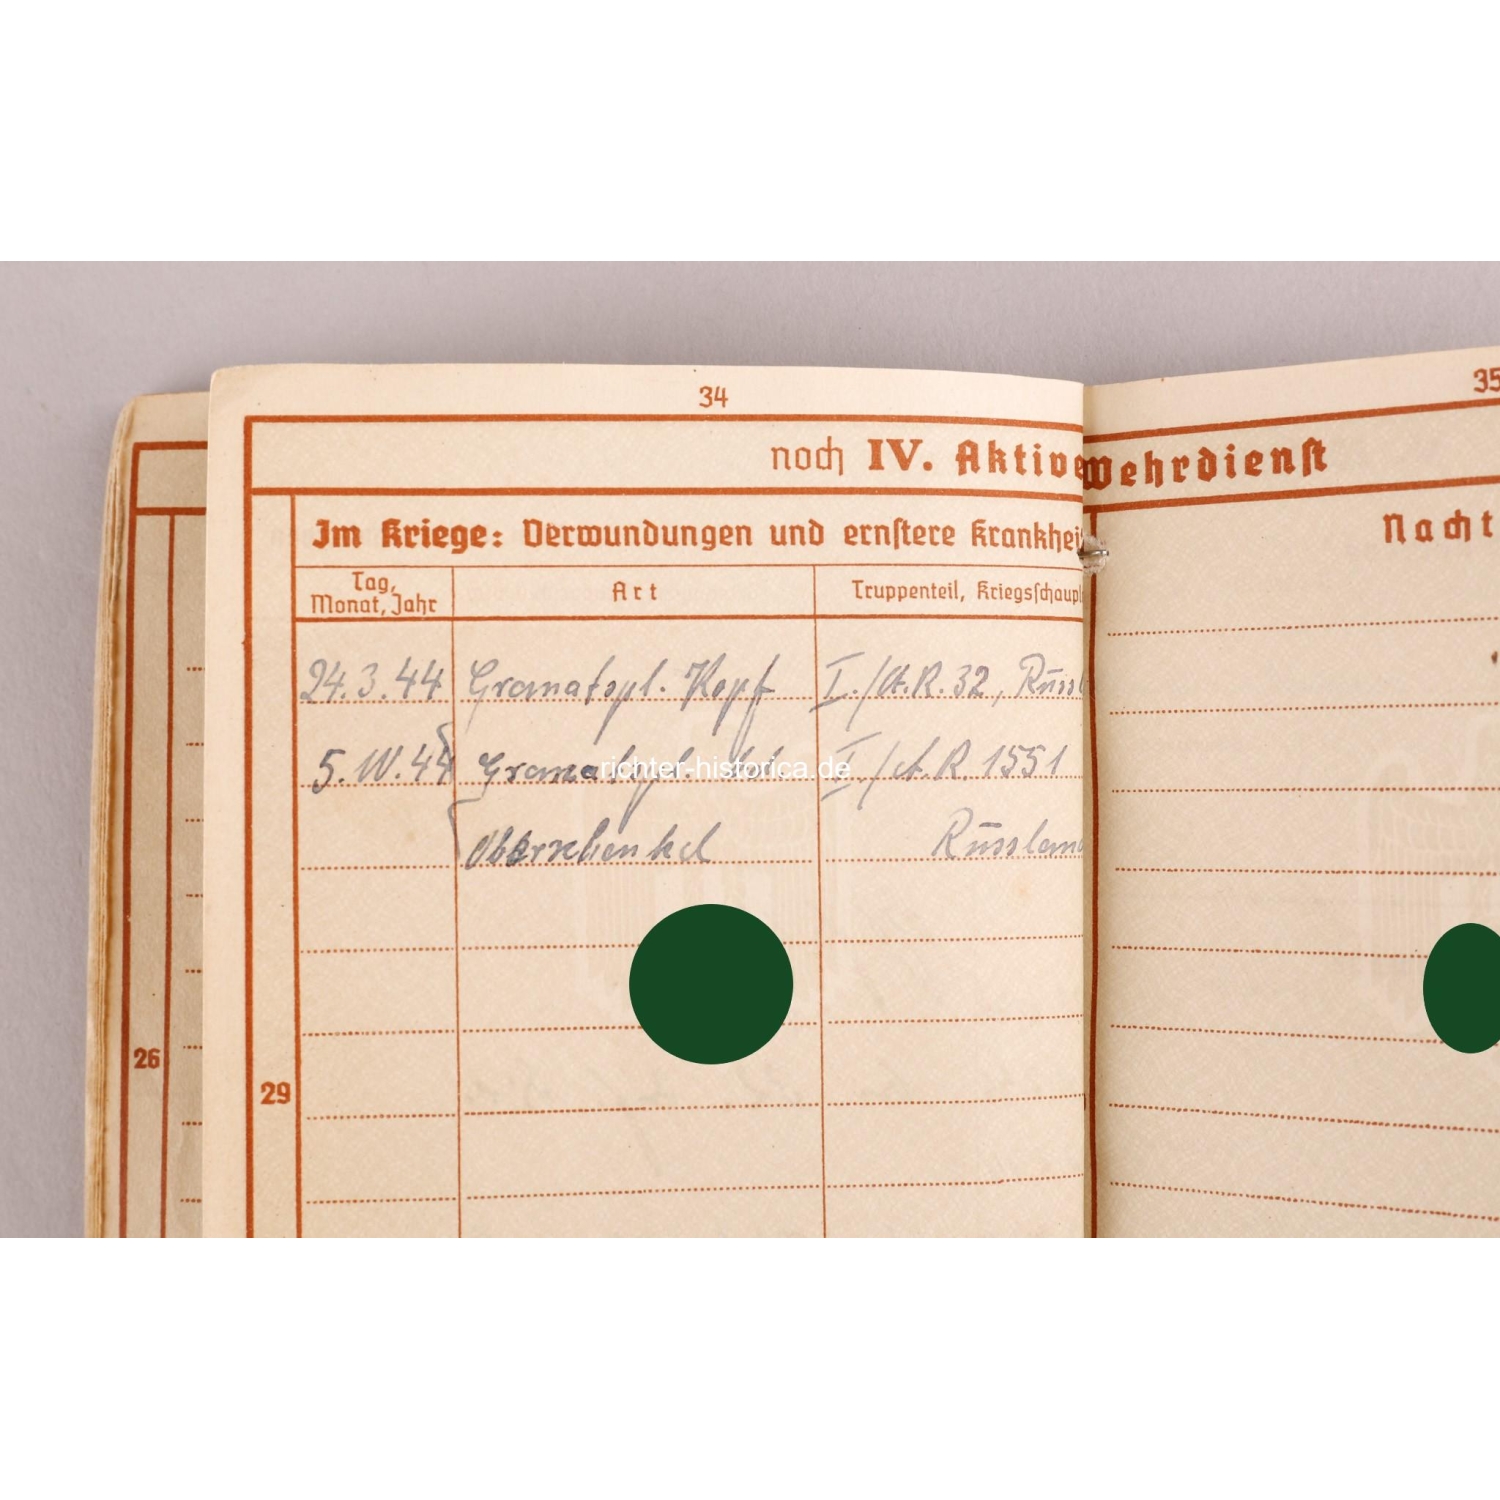 34
35
noch IV. Aktiver Wehrdienst
Im Kriege: Verwundungen und ernstere Krankhei
Nacht
Tag, Monat, Jahr
Art
Truppenteil, Kriegsschaupl
24.3.44 Granatspl. Kopf I./A.R. 32, Russl
5. 10. 44 Granatspl. I./A.R. 1551
richter-historica.de
Oberschenkel Russlan
26
29